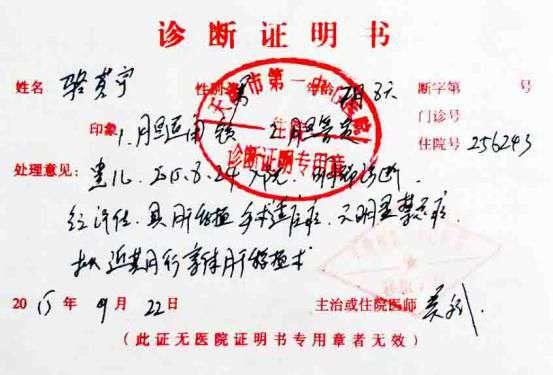 诊断证明书
姓名 骆 宁 性别 男 年龄 月3天 断字第 号
天津市第一中心医院
住院
诊断证明专用章
门诊号
印象: 1. 胆道闭锁 2. 胆管炎
住院号 256243
处理意见: 患儿, 2015.8.24入院, 明确诊断.
经评估, 具肝移植手术适应症, 无明显禁忌症,
拟近期行亲体肝移植术
2015年9月22日 主治或住院医师
(此证无医院证明书专用章者无效)